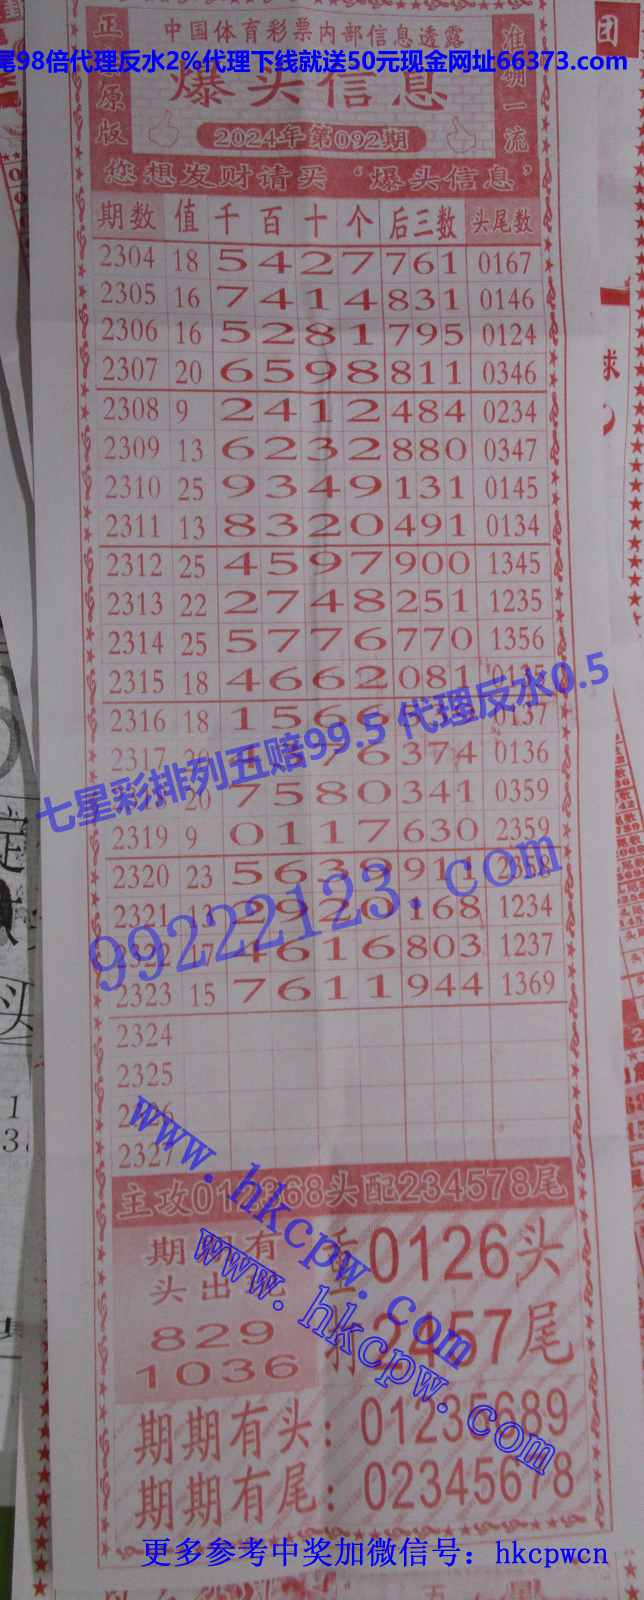 中国体育彩票内部信息透露
尾98倍代理反水2%代理下线就送50元现金网址66373.com
正
原版
准确一流
爆头信息
2024年第092期
您想发财请买‘爆头信息’
期数 值 千 百 十 个 后三数 头尾数
2304 18 5 4 2 7 761 0167
2305 16 7 4 1 4 831 0146
2306 16 5 2 8 1 795 0124
2307 20 6 5 9 8 811 0346
2308 9 2 4 1 2 484 0234
2309 13 6 2 3 2 880 0347
2310 25 9 3 4 9 131 0145
2311 13 8 3 2 0 491 0134
2312 25 4 5 9 7 900 1345
2313 22 2 7 4 8 251 1235
2314 25 5 7 7 6 770 1356
2315 18 4 6 6 2 081
2316 18 1 5 6 6 0137
2317 6 374 0136
20 7 5 8 0 341 0359
2319 9 0 1 1 7 630 2359
2320 23 5 6 3 9 911 2358
2321 13 2 9 2 0 168 1234
2322 17 4 6 1 6 803 1237
2323 15 7 6 1 1 944 1369
2324
2325
2326
2327
七星彩排列五赔99.5 代理反水0.5
99222123.com
主攻 368头配234578尾
www.hkcpw.com
www.hkcpw.com
期期有
头出
829
1036
0126头
打2457尾
期期有头：01235689
期期有尾：02345678
更多参考中奖加微信号：hkcpwcn